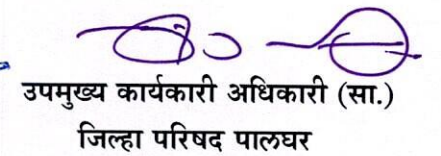 उपमुख्य कार्यकारी अधिकारी (सा.)
जिल्हा परिषद पालघर